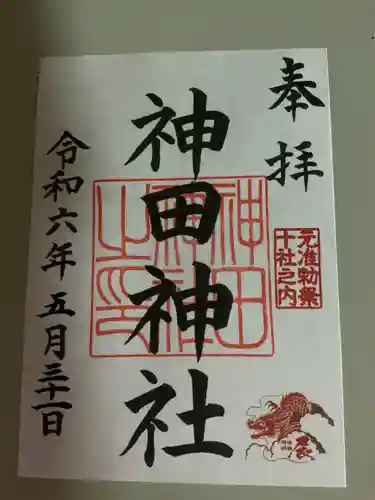 奉拝
神田神社
神田神社之印
元准勅祭
十社之内
令和六年五月三十一日